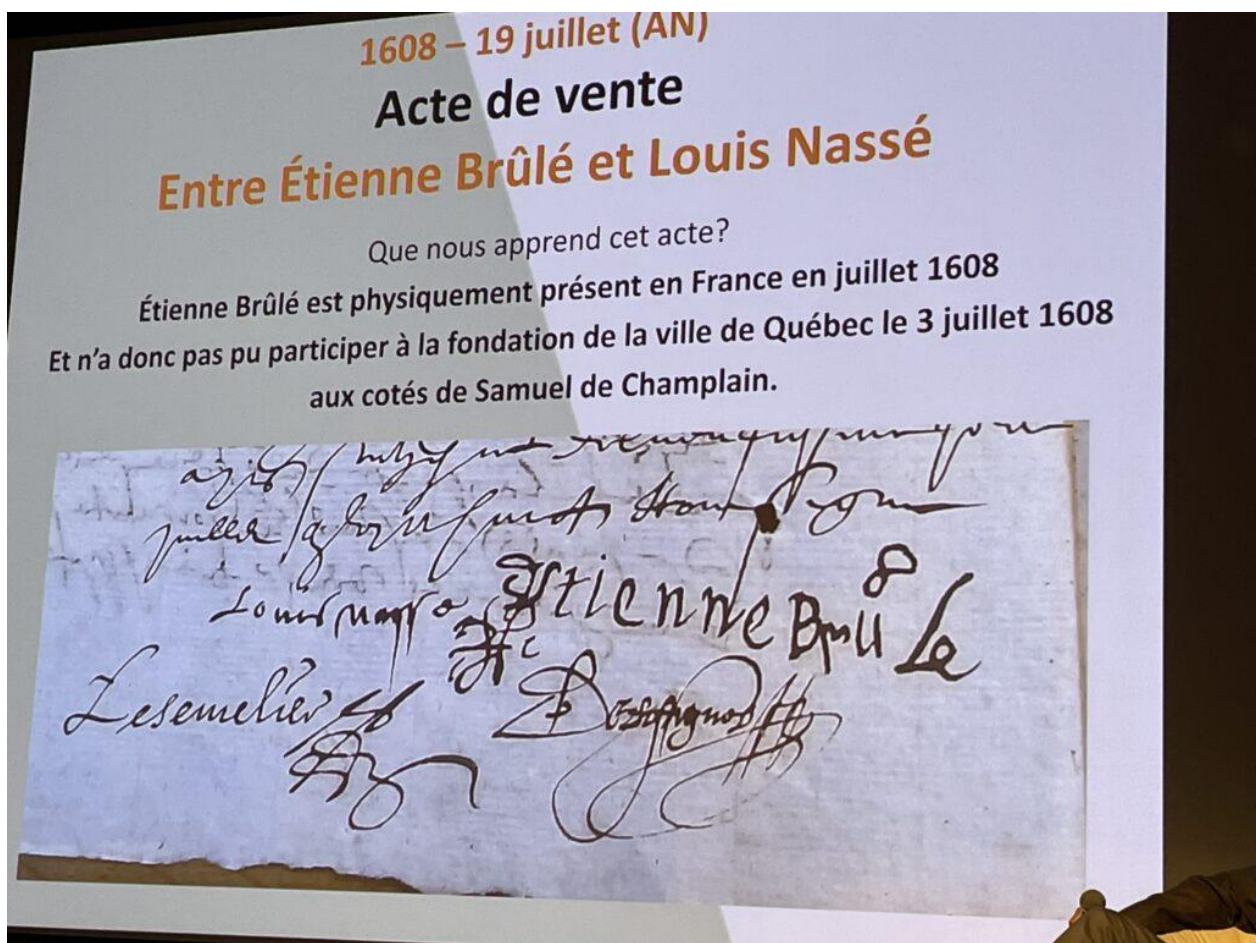 1608 – 19 juillet (AN)
Acte de vente
Entre Étienne Brûlé et Louis Nassé
Que nous apprend cet acte?
Étienne Brûlé est physiquement présent en France en juillet 1608
Et n'a donc pas pu participer à la fondation de la ville de Québec le 3 juillet 1608
aux cotés de Samuel de Champlain.
juillet
Louis Estienne Brulle
Lesemelier